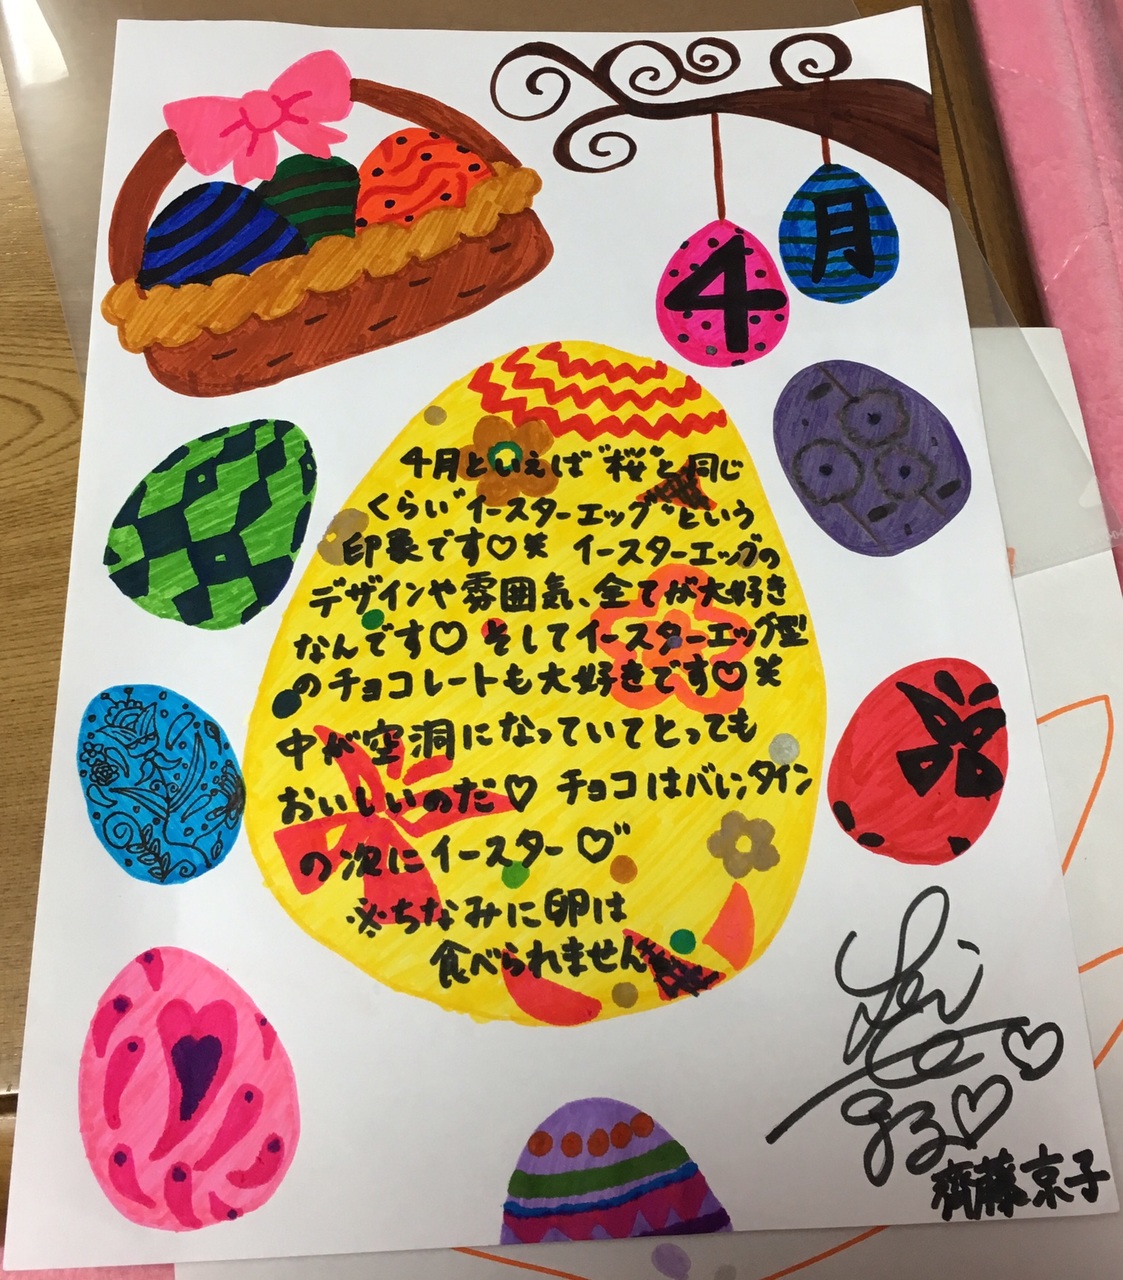 4月
4月といえば"桜"と同じ
くらい"イースターエッグ"という
印象です♡※ イースターエッグの
デザインや雰囲気、全てが大好き
なんです♡ そしてイースターエッグ型
のチョコレートも大好きです♡※
中が空洞になっていてとっても
おいしいのだ♡ チョコはバレンタイン
の次にイースター♡"
※ちなみに卵は
食べられません
齊藤京子